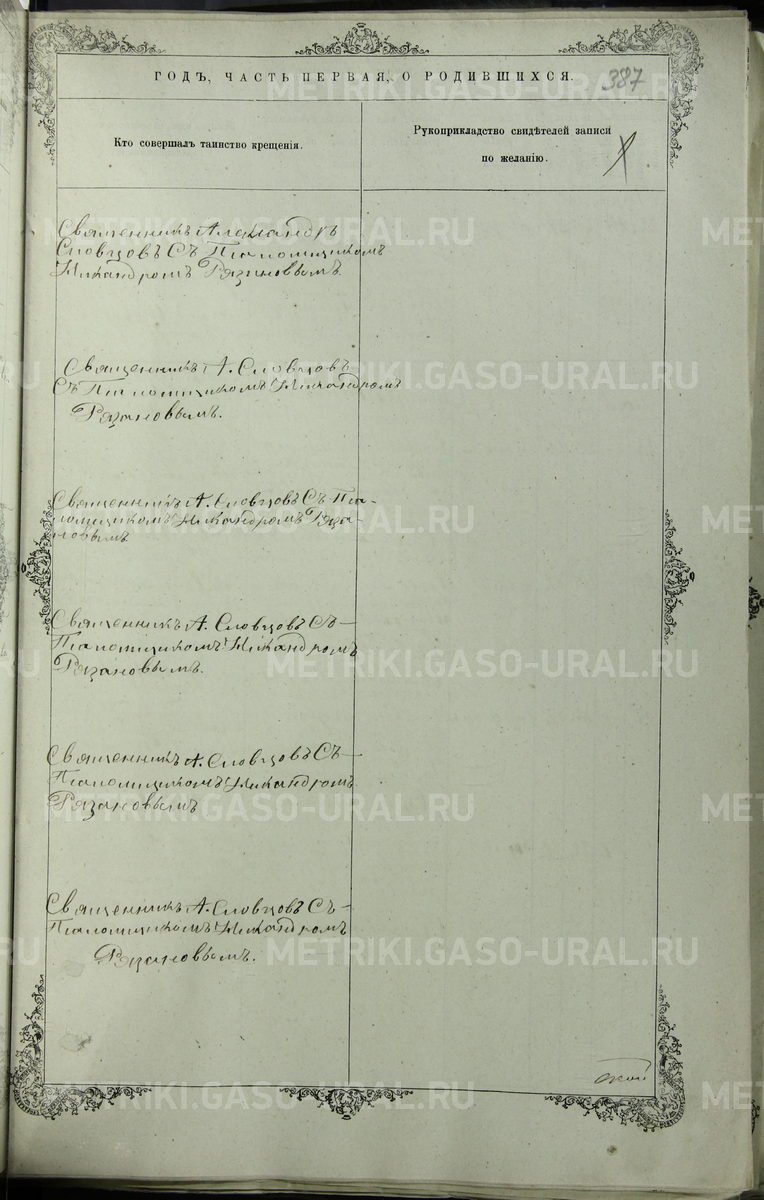 ГОДЪ, ЧАСТЬ ПЕРВАЯ, О РОДИВШИХСЯ.
387
Кто совершалъ таинство крещенія.
Рукоприкладство свидѣтелей записи
по желанію.
Священникъ Александръ
Словцовъ Съ Псаломщикомъ
Никандромъ Рязановымъ.
Священникъ А. Словцовъ
Съ Псаломщикомъ Никандромъ
Рязановымъ.
Священникъ А. Словцовъ Съ Пса-
ломщикомъ Никандромъ Ряза-
новымъ
Священникъ А. Словцовъ Съ
Псаломщикомъ Никандромъ
Рязановымъ.
Священникъ А. Словцовъ Съ
Псаломщикомъ Никандромъ
Рязановымъ
Священникъ А. Словцовъ Съ
Псаломщикомъ Никандромъ
Рязановымъ.
METRIKI.GASO-URAL.RU